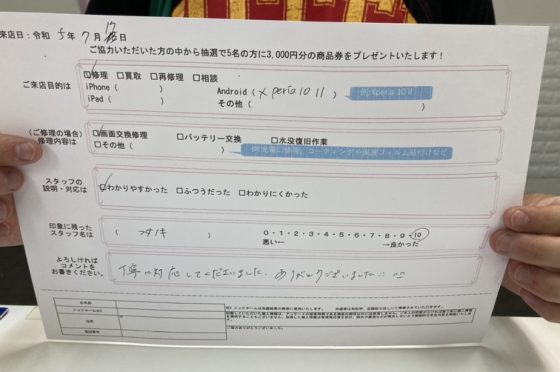 来店日：令和 5年 7月 17日
ご協力いただいた方の中から抽選で5名の方に3,000円分の商品券をプレゼントいたします！
ご来店目的は
☑修理 □買取 □再修理 □相談
iPhone ( ) Android (Xperia 10 II) 例：Xperia 10 II
iPad ( ) その他 ( )
(ご修理の場合)
修理内容は
☑画面交換修理 □バッテリー交換 □水没復旧作業
□その他 ( )
スタッフの
説明・対応は
☑わかりやすかった □ふつうだった □わかりにくかった
印象に残った
スタッフ名は
0・1・2・3・4・5・6・7・8・9・10
悪い← →良かった
よろしければ
コメントを
お書きください。
丁寧に対応してくださいました。ありがとうございました
お名前
住所
電話番号
ご協力ありがとうございました。